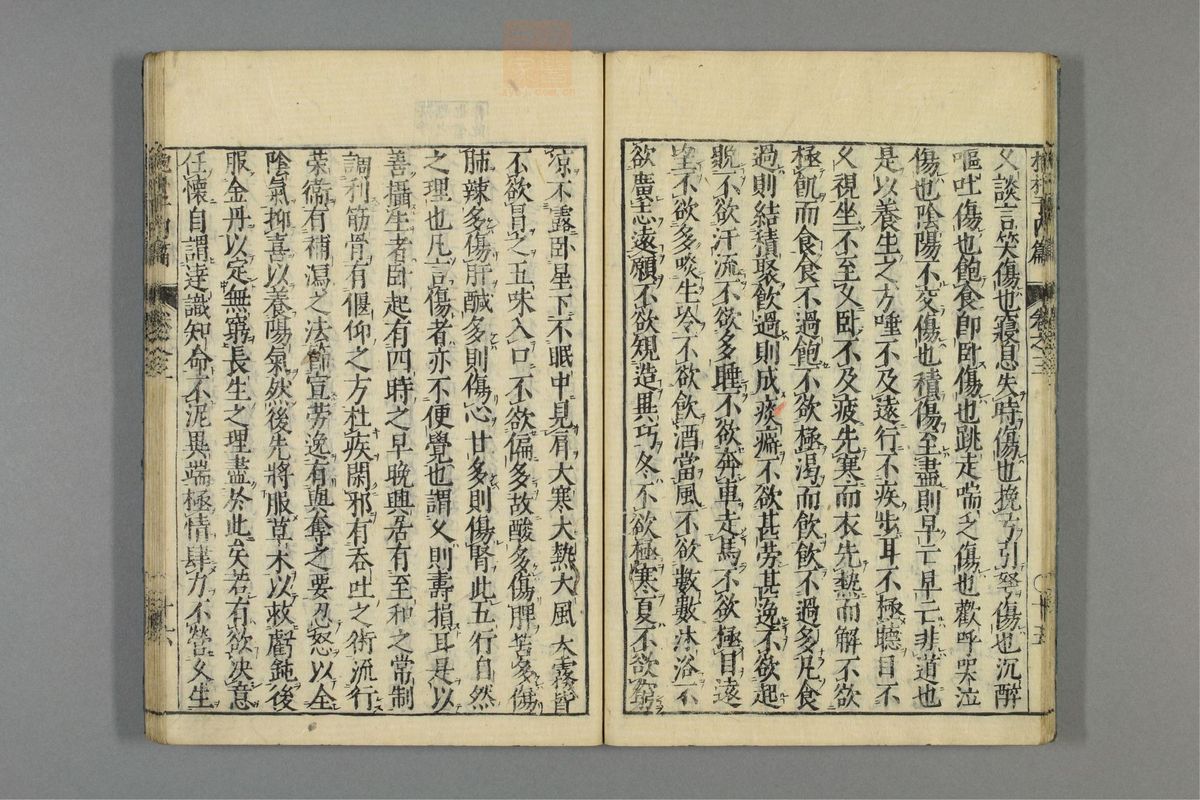 久談言笑傷也寢息失時傷也挽弓引弩傷也沉醉
嘔吐傷也飽食即臥傷也跳走喘乏傷也歡呼哭泣
傷也陰陽不交傷也積傷至盡則早亡早亡非道也
是以養生之方唾不及遠行不疾步耳不極聽目不
久視坐不至久臥不及疲先寒而衣先熱而解不欲
極飢而食食不過飽不欲極渴而飲飲不過多凡食
過則結積聚飲過則成痰癖不欲甚勞甚逸不欲起
晚不欲汗流不欲多睡不欲奔車走馬不欲極目遠
望不欲多啖生冷不欲飲酒當風不欲數數沐浴不
欲廣志遠願不欲規造異巧冬不欲極寒夏不欲窮
涼不露臥星下不眠中見肩大寒大熱大風大霧皆
不欲冒之五味入口不欲偏多故酸多傷脾苦多傷
肺辣多傷肝鹹多則傷心甘多則傷腎此五行自然
之理也凡言傷者亦不便覺也謂久則壽損耳是以
善攝生者臥起有四時之早晚興居有至和之常制
調利筋骨有偃仰之方杜疾閑邪有吞吐之術流行
榮衞有補瀉之法節宣勞逸有與奪之要忍怒以全
陰氣抑喜以養陽氣然後先將服草木以救虧鈍後
服金丹以定無窮長生之理盡於此矣若有欲决意
任懷自謂達識知命不泥異端極情肆力不營久生
抱朴子內篇
卷之三
十五
十六